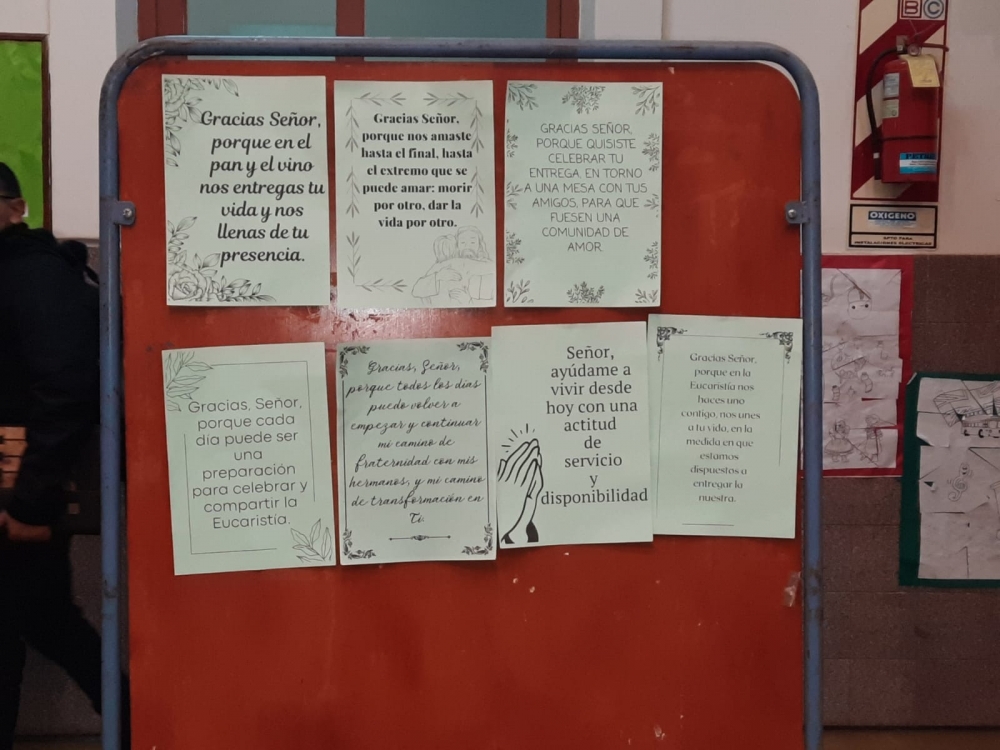 Gracias Señor,
porque en el
pan y el vino
nos entregas tu
vida y nos
llenas de tu
presencia.
Gracias Señor,
porque nos amaste
hasta el final, hasta
el extremo que se
puede amar: morir
por otro, dar la
vida por otro.
GRACIAS SEÑOR,
PORQUE QUISISTE
CELEBRAR TU
ENTREGA, EN TORNO
A UNA MESA CON TUS
AMIGOS, PARA QUE
FUESEN UNA
COMUNIDAD DE
AMOR.
Gracias, Señor,
porque cada
día puede ser
una
preparación
para celebrar y
compartir la
Eucaristía.
Gracias, Señor,
porque todos los días
puedo volver a
empezar y continuar
mi camino de
fraternidad con mis
hermanos, y mi camino
de transformación en
Ti.
Señor,
ayúdame a
vivir desde
hoy con una
actitud
de
servicio
y
disponibilidad
Gracias Señor,
porque en la
Eucaristía nos
haces uno
contigo, nos unes
a tu vida, en la
medida en que
estamos
dispuestos a
entregar la
nuestra.
BC
OXIGENO
APTO PARA
INSTALACIONES ELECTRICAS